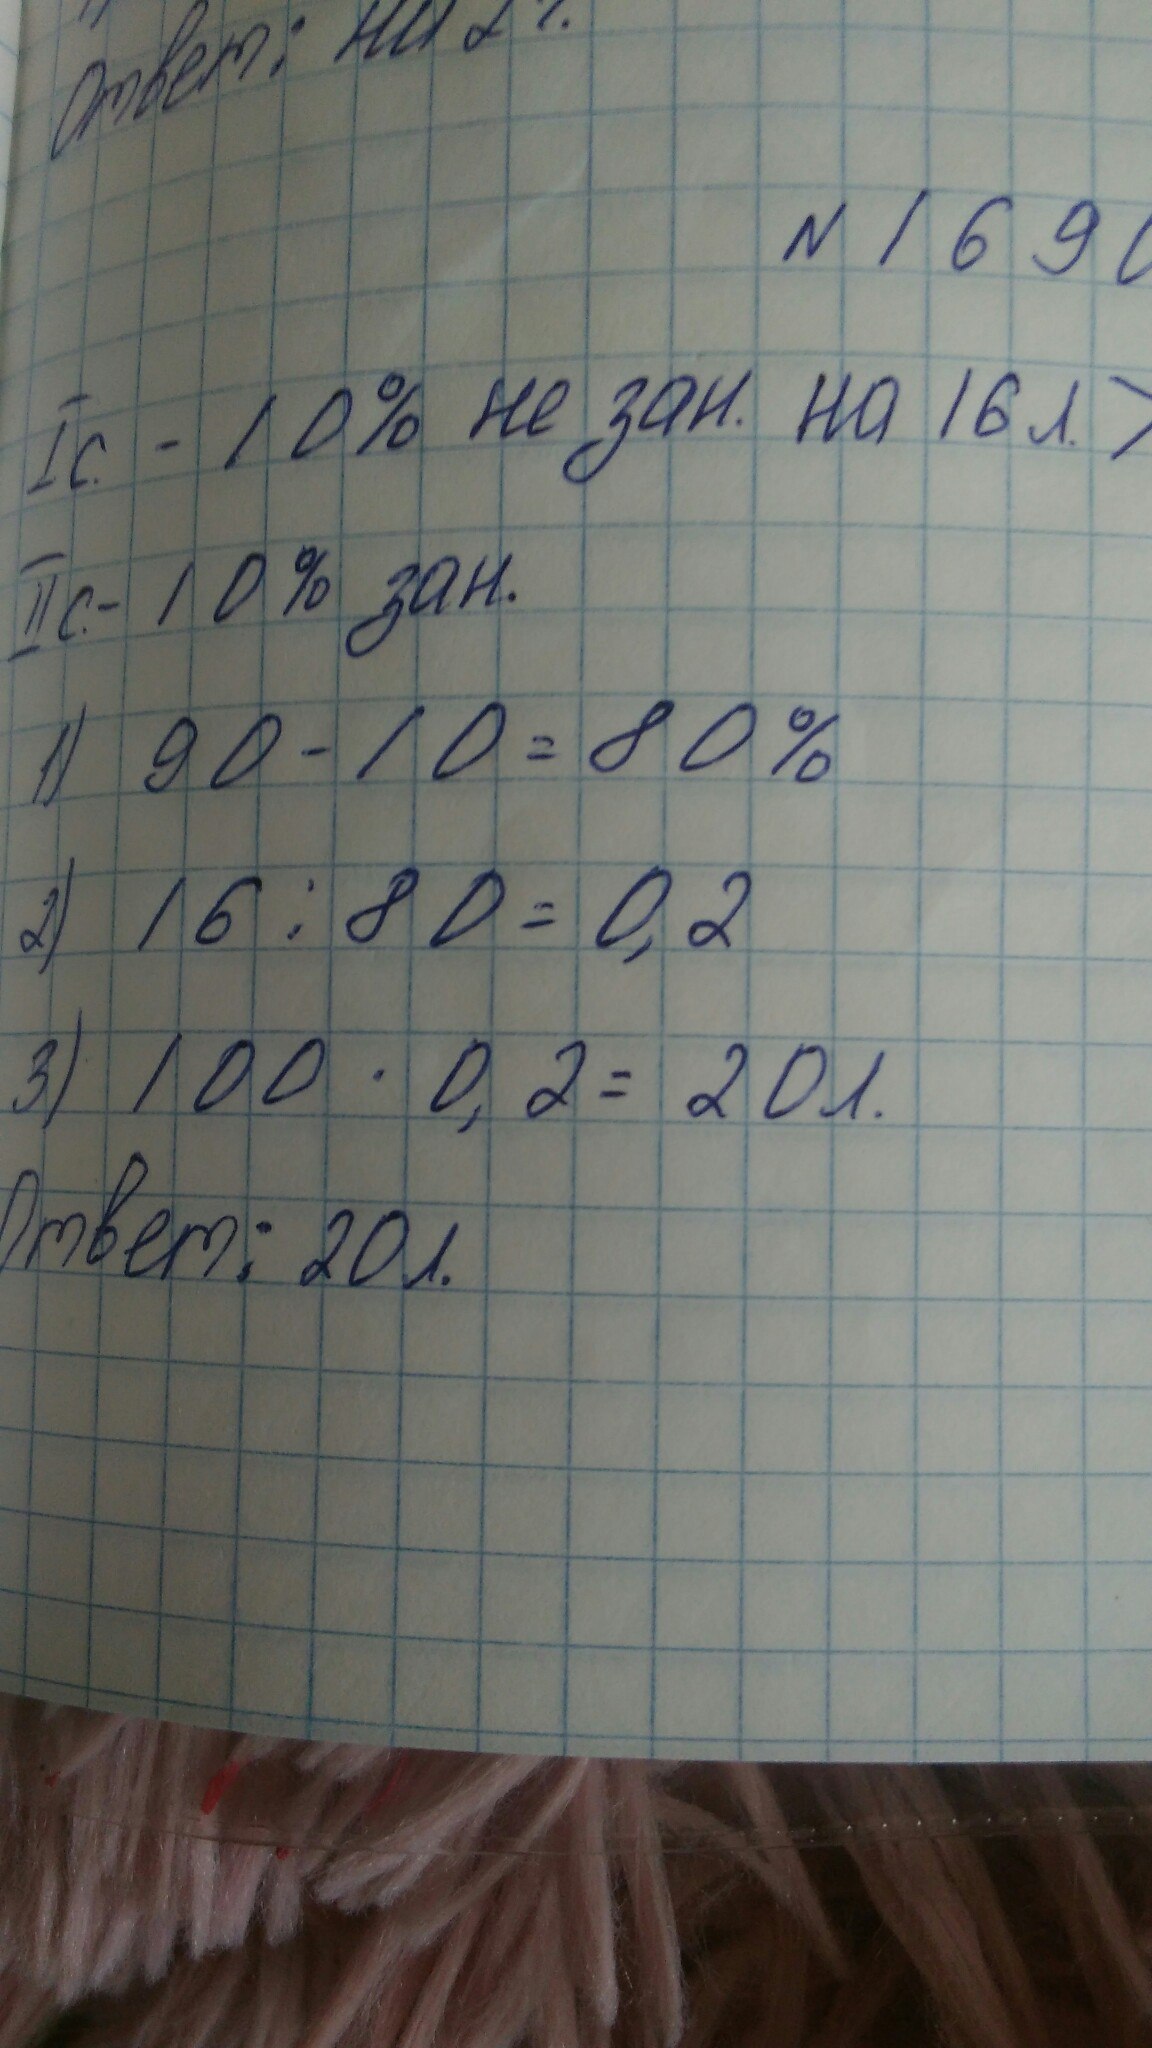 Ответ: на 2%.
N 169
I с. - 10% не зан. на 16 л. >
II с. - 10% зан.
1) 90 - 10 = 80%
2) 16 : 80 = 0,2
3) 100 · 0,2 = 20 л.
Ответ: 20 л.